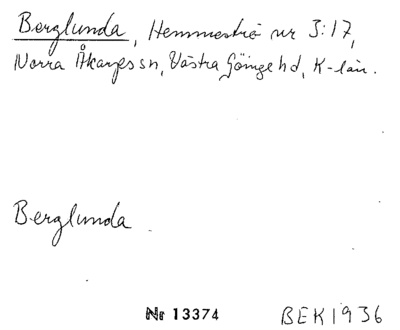 Berglunda, Hemmeströ nr 3:17,
Norra Åkarps sn, Västra Göinge hd, K-län.
Berglunda
Nr 13374
BEK1936